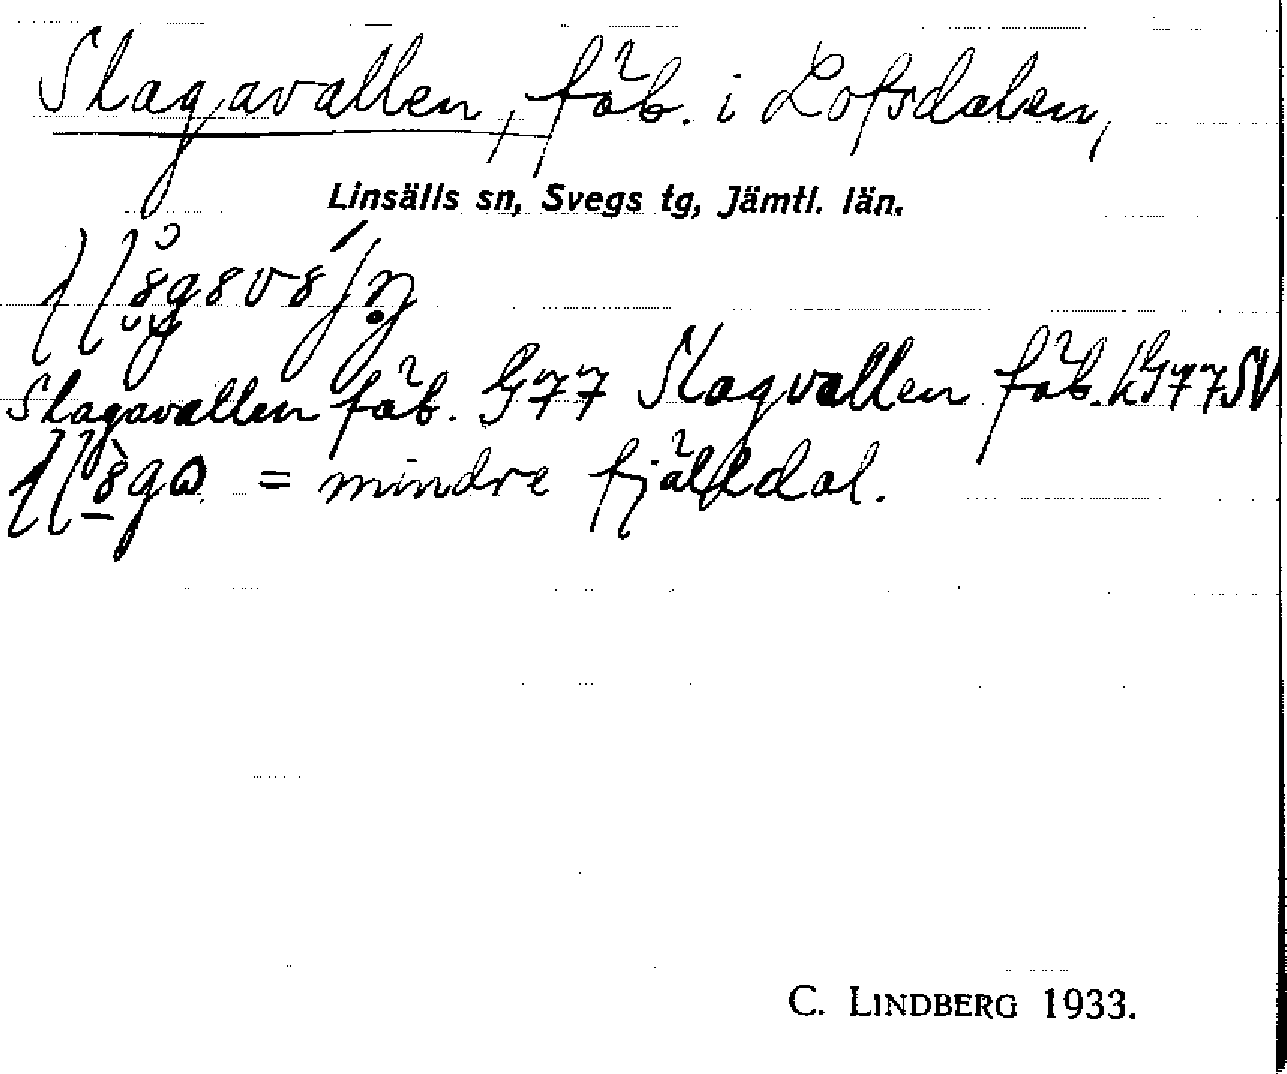 Slagavallen, fäb. i Lofsdalen,
Linsälls sn, Svegs tg, Jämtl. län.
Slagavallen fäb. G77 Slagvallen fäb. LG77SV
= mindre fjälldal.
C. LINDBERG 1933.